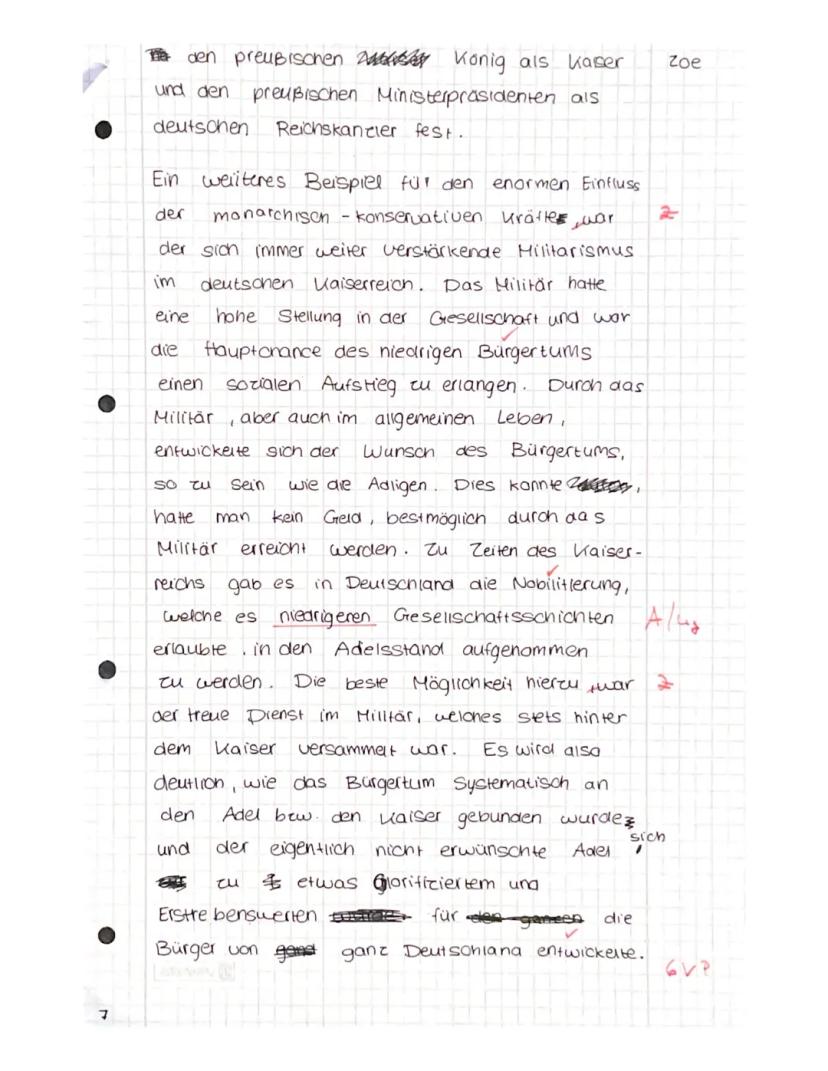 den preußischen König als Kaiser
Zoe
und den preußischen Ministerpräsidenten als
deutschen Reichskanzler fest.
Ein weiteres Beispiel für den enormen Einfluss
der monarchisch - konservativen Kräfte, war
Z
der sich immer weiter verstärkende Militarismus
im deutschen Kaiserreich. Das Militär hatte
eine hohe Stellung in der Gesellschaft und war
die Hauptchance des niedrigen Bürgertums
einen sozialen Aufstieg zu erlangen. Durch das
Militär, aber auch im allgemeinen Leben,
entwickelte sich der Wunsch des Bürgertums,
so zu sein wie die Adligen. Dies konnte,
hatte man kein Geld, bestmöglich durch das
Militär erreicht werden. Zu Zeiten des Kaiser-
reichs gab es in Deutschland die Nobilitierung,
welche es niedrigeren Gesellschaftsschichten
erlaubte, in den Adelsstand aufgenommen
zu werden. Die beste Möglichkeit hierzu, war
Z
der treue Dienst im Militär, welches stets hinter
dem Kaiser versammelt war. Es wird also
deutlich, wie das Bürgertum Systematisch an
den Adel bzw. den Kaiser gebunden wurde
und der eigentlich nicht erwünschte Adel sich
zu etwas Glorifiziertem und
Erstrebenswerten für die
Bürger von ganz Deutschland entwickelte.
6 VP
7